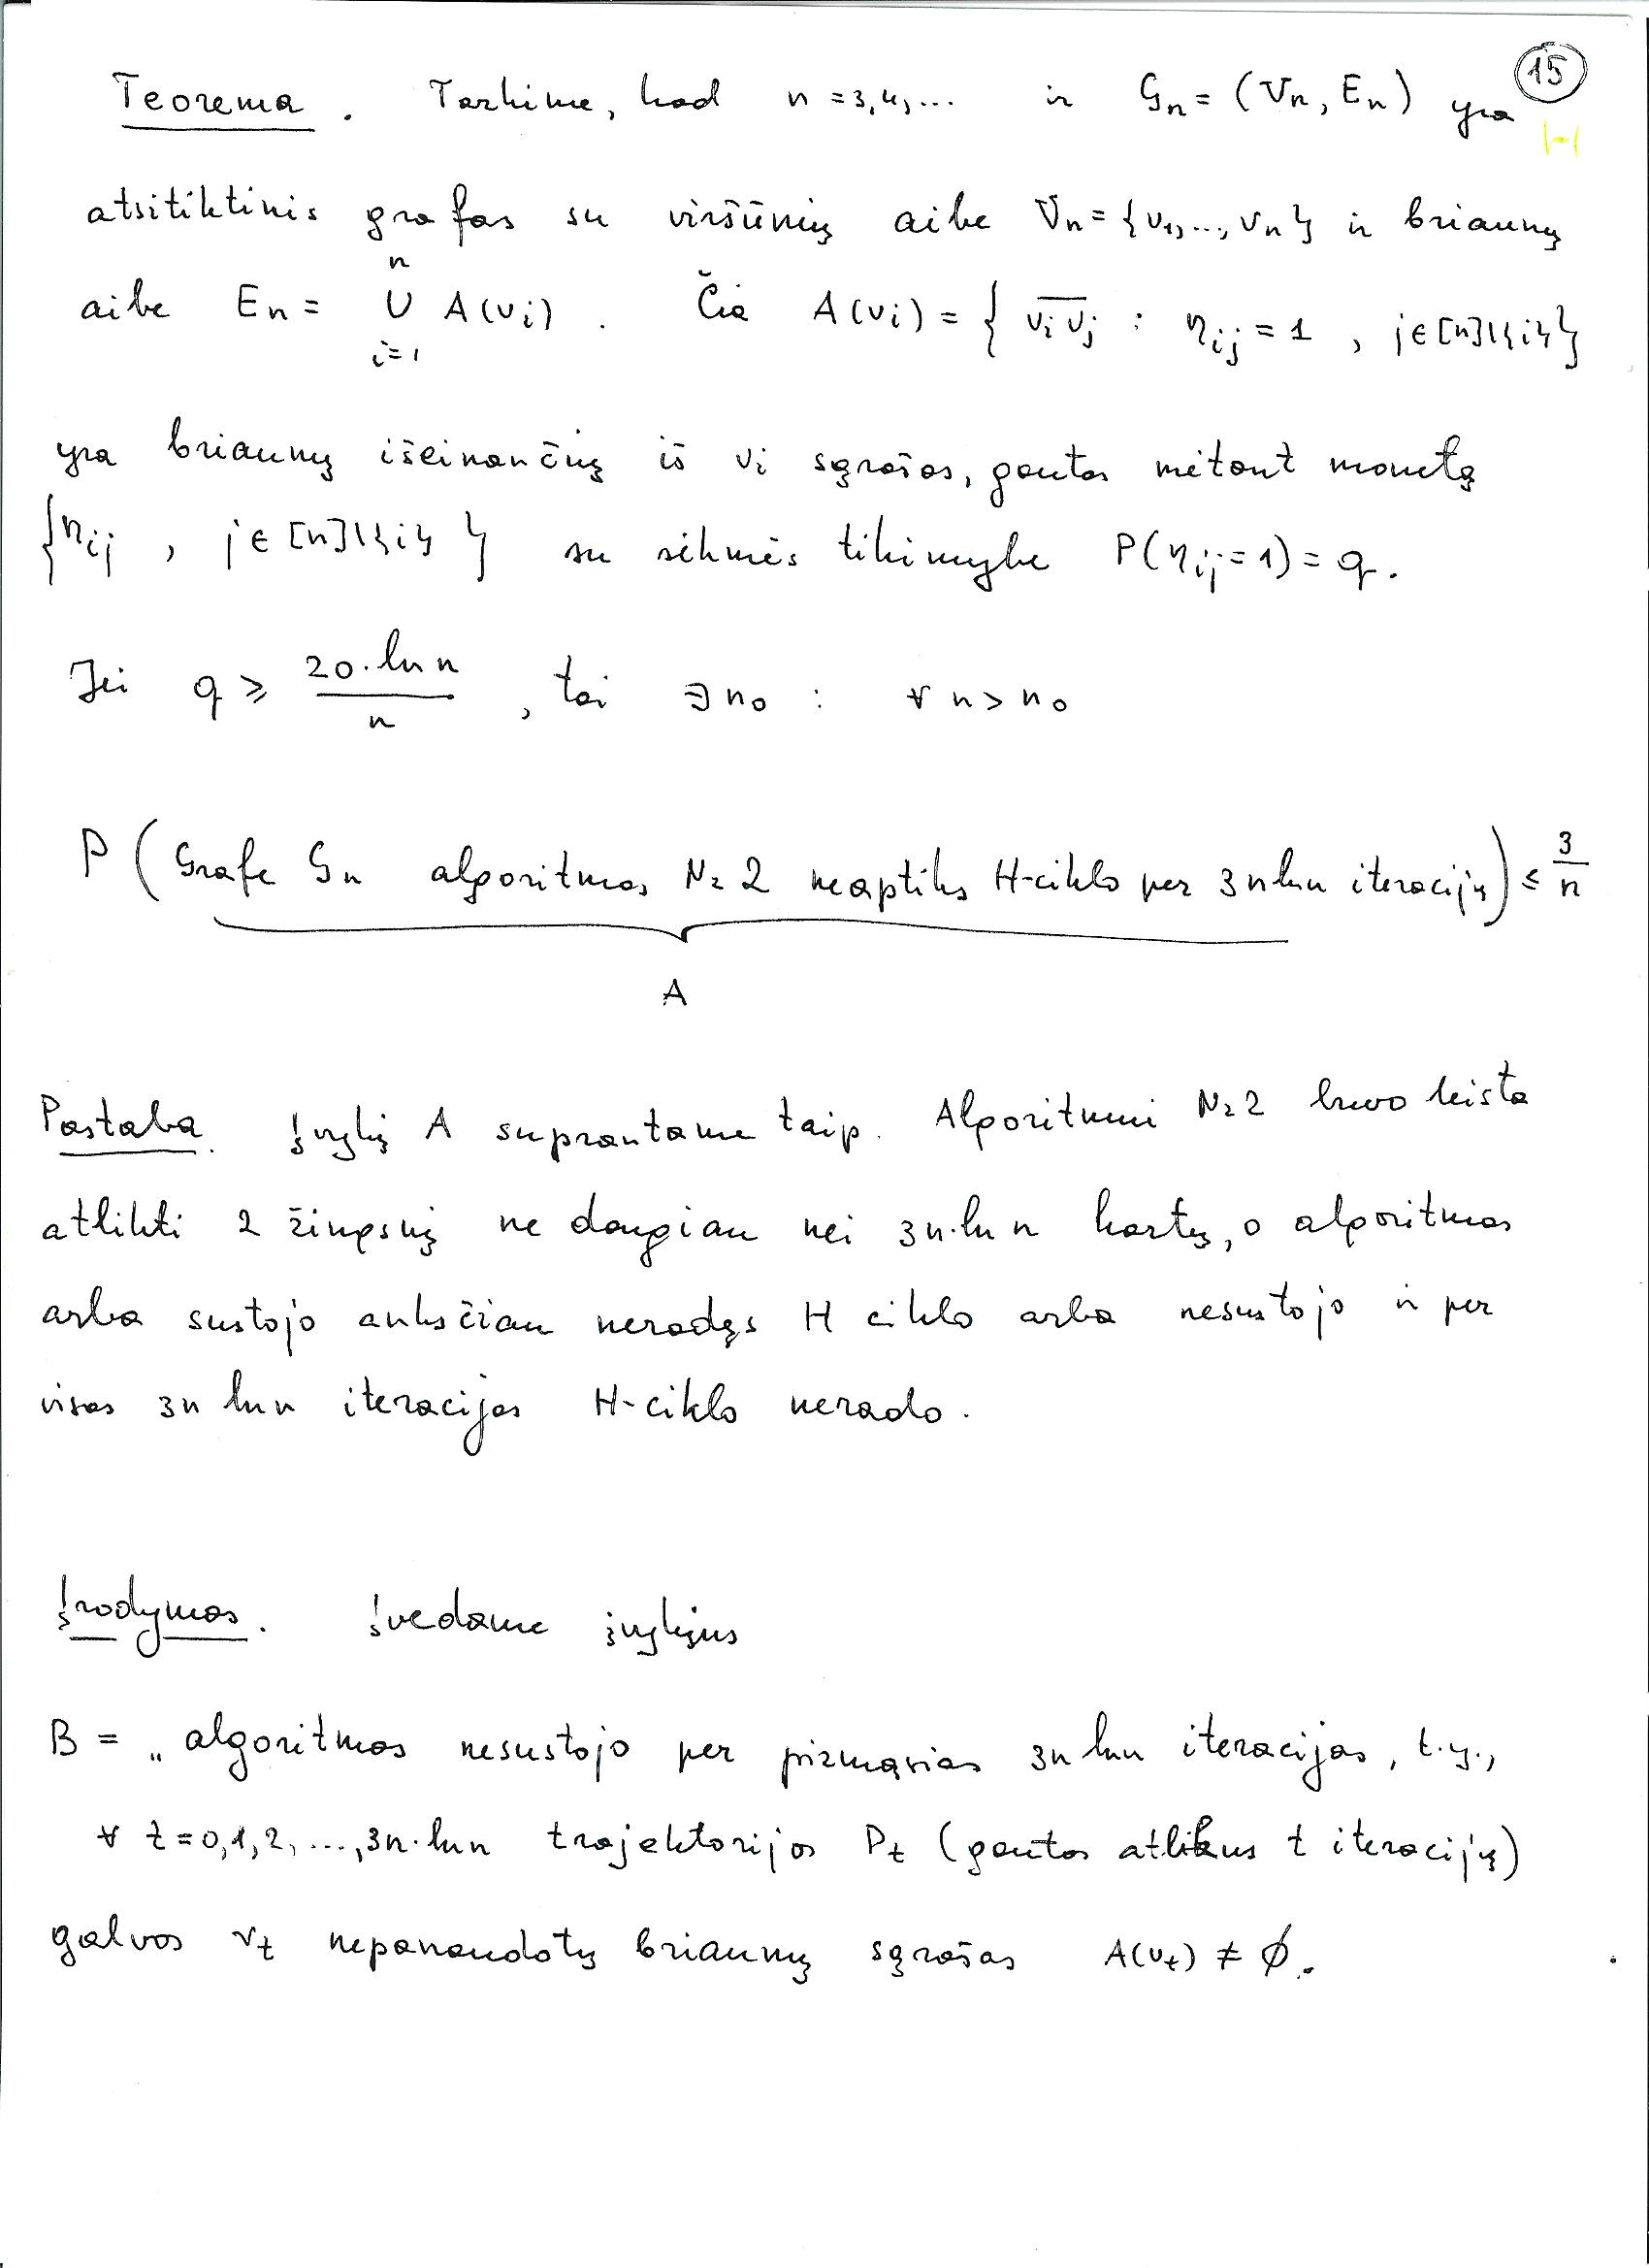 15
Teorema. Tarkime, kad n = 3,4,... ir Gn = (Vn, En) yra
H
atsitiktinis grafas su viršūnių aibe Vn = {v1,..., vn} ir briaunų
aibe En = ⋃_{i=1}^{n} A(vi). Čia A(vi) = { \overline{vi vj} : ηij = 1, j∈[n]\{i}}
yra briaunų išeinančių iš vi sąrašas, gautas mėtant monetą
{ηij, j∈[n]\{i}} su sėkmės tikimybe P(ηij=1) = q.
Jei q ≥ \frac{20·ln n}{n}, tai ∃ n0 : ∀ n > n0
P(Grafe Gn algoritmas Nr 2 neaptiks H-ciklo per 3n ln n iteracijų) ≤ \frac{3}{n}
A
Pastaba. Įvykį A suprantame taip. Algoritmui Nr 2 buvo leista
atlikti 2 žingsnį ne daugiau nei 3n·ln n kartų, o algoritmas
arba sustojo anksčiau neradęs H ciklo arba nesustojo ir per
visas 3n ln n iteracijas H-ciklo nerado.
Įrodymas. Įvedame įvykius
B = „algoritmas nesustojo per pirmąsias 3n ln n iteracijas, t.y.,
∀ t = 0,1,2,...,3n·ln n trajektorijos Pt (gautos atlikus t iteracijų)
galvos vt nepanaudotų briaunų sąrašas A(vt) ≠ ∅.